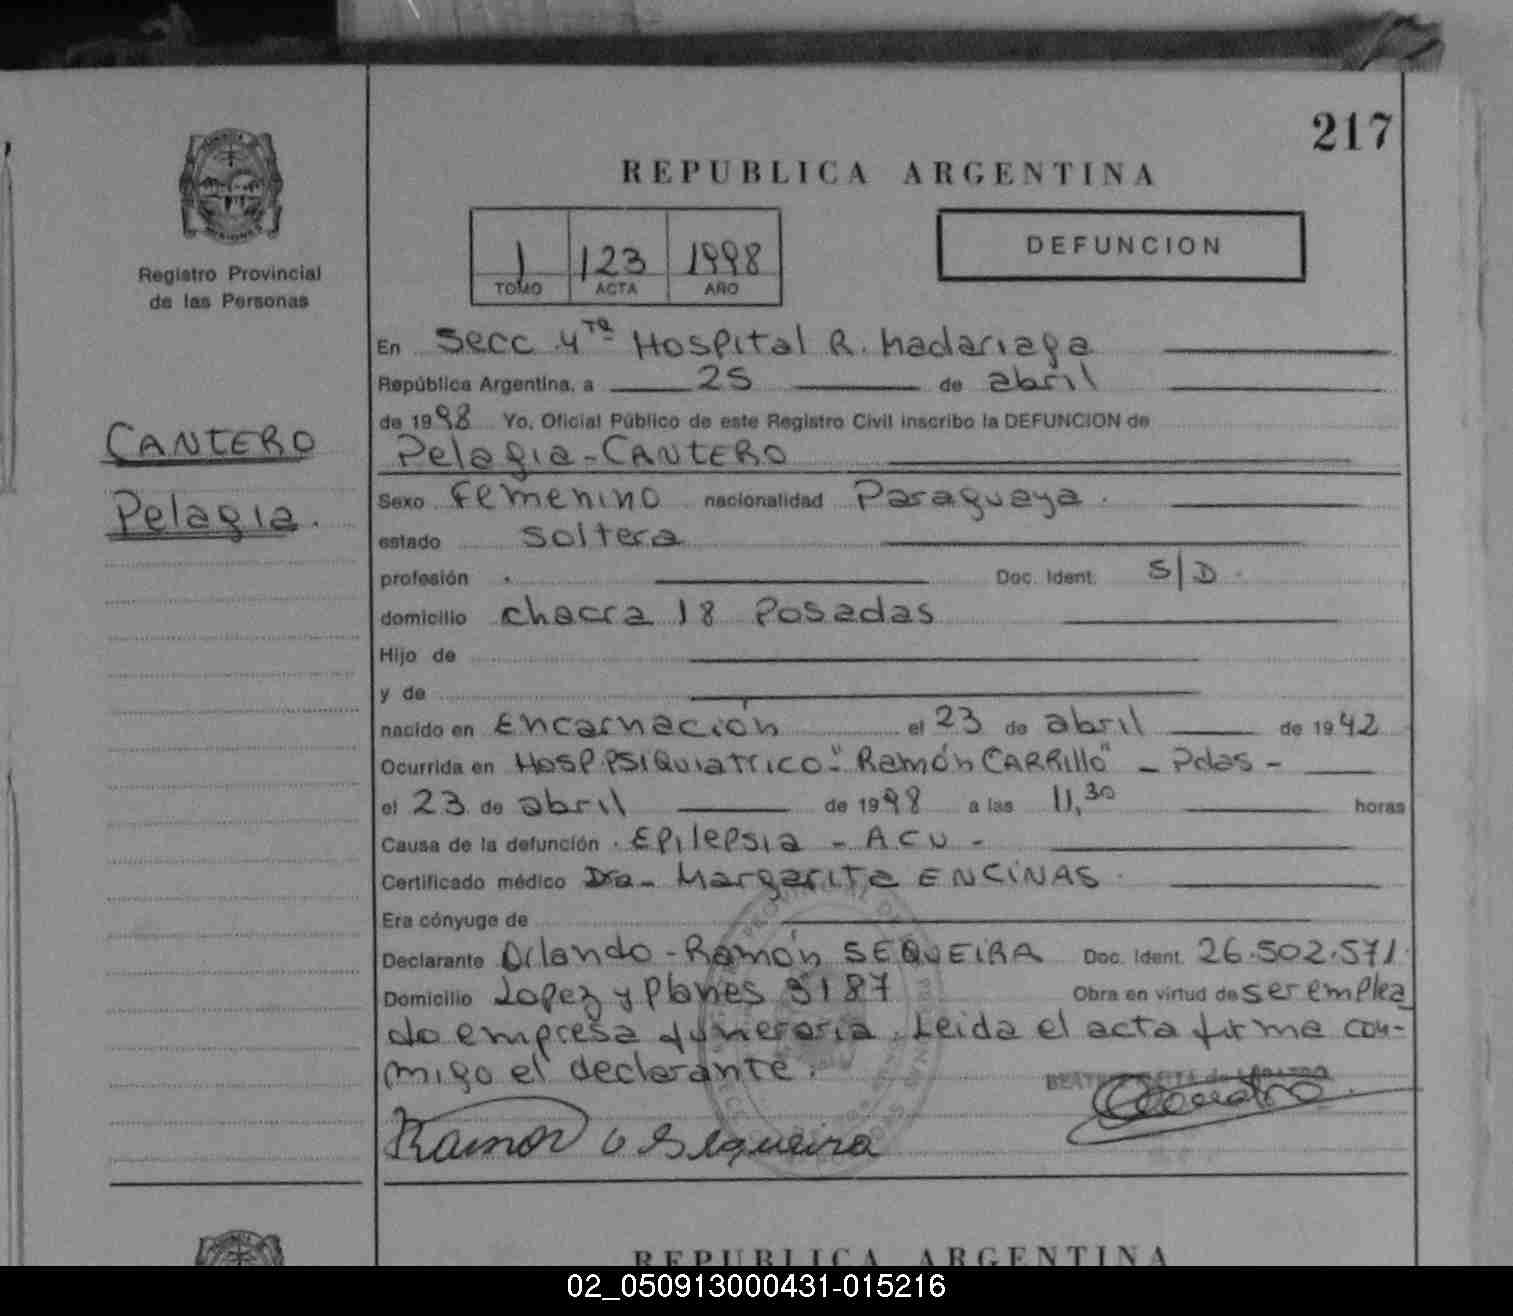 217
REPUBLICA ARGENTINA
Registro Provincial
de las Personas
1 123 1998
TOMO ACTA AÑO
DEFUNCION
CANTERO
Pelagia.
En Secc. 4ta Hospital R. Madariaga
República Argentina, a 25 de abril
de 1998 Yo, Oficial Público de este Registro Civil inscribo la DEFUNCION de
Pelagia-CANTERO
Sexo Femenino nacionalidad Paraguaya.
estado Soltera
profesión Doc. Ident. S/D
domicilio chacra 18 Posadas
Hijo de
y de
nacido en Encarnación el 23 de abril de 1942
Ocurrida en HOSP.PSIQuiatrico-"Ramón CARRIllo" - Pdas-
el 23 de abril de 1998 a las 11,30 horas
Causa de la defunción Epilepsia - ACU -
Certificado médico Dra- Margarita ENCINAS
Era cónyuge de
Declarante Orlando-Ramón SEQUEIRA Doc. Ident. 26.502.571
Domicilio Lopez y Planes 5187 Obra en virtud de ser emplea
do empresa funeraria. Leida el acta firma con-
migo el declarante.
Ramon O Sequeira
REPUBLICA ARGENTINA
02_050913000431-015216